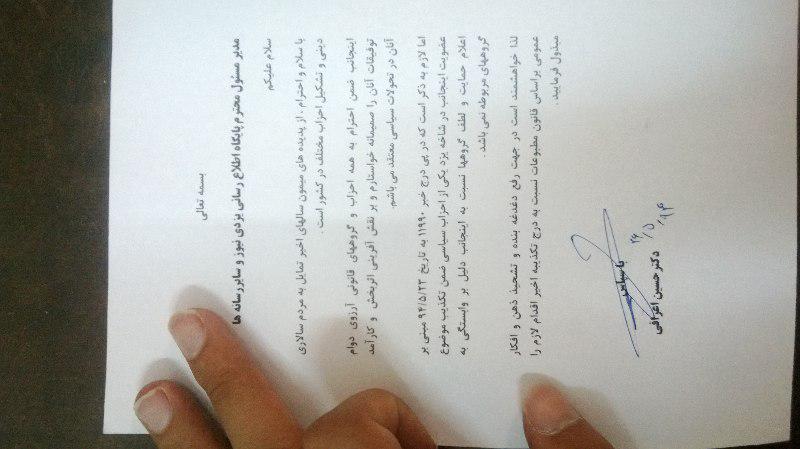 بسمه تعالی
مدیر مسئول محترم پایگاه اطلاع رسانی یزدی نیوز و سایر رسانه ها
سلام علیکم
با سلام و احترام . از پدیده های میمون سالهای اخیر تمایل به مردم سالاری
دینی و تشکیل احزاب مختلف در کشور است .
اینجانب ضمن احترام به همه احزاب و گروههای قانونی آرزوی دوام
توفیقات آنان را صمیمانه خواستارم و بر نقش آفرینی اثربخش و کارآمد
آنان در تحولات سیاسی معتقد می باشم.
اما لازم به ذکر است که در پی درج خبر ۱۱۹۹۰ به تاریخ ۹۴/۵/۲۳ مبنی بر
عضویت اینجانب در شاخه یزد یکی از احزاب سیاسی ضمن تکذیب موضوع
اعلام حمایت و لطف گروهها نسبت به اینجانب دلیل بر وابستگی به
گروههای مربوطه نمی باشد .
لذا خواهشمند است در جهت رفع دغدغه بنده و تشحیذ ذهن و افکار
عمومی براساس قانون مطبوعات نسبت به درج تکذیبه اخیر اقدام لازم را
مبذول فرمایید.
با سپاس
دکتر حسین اعرافی